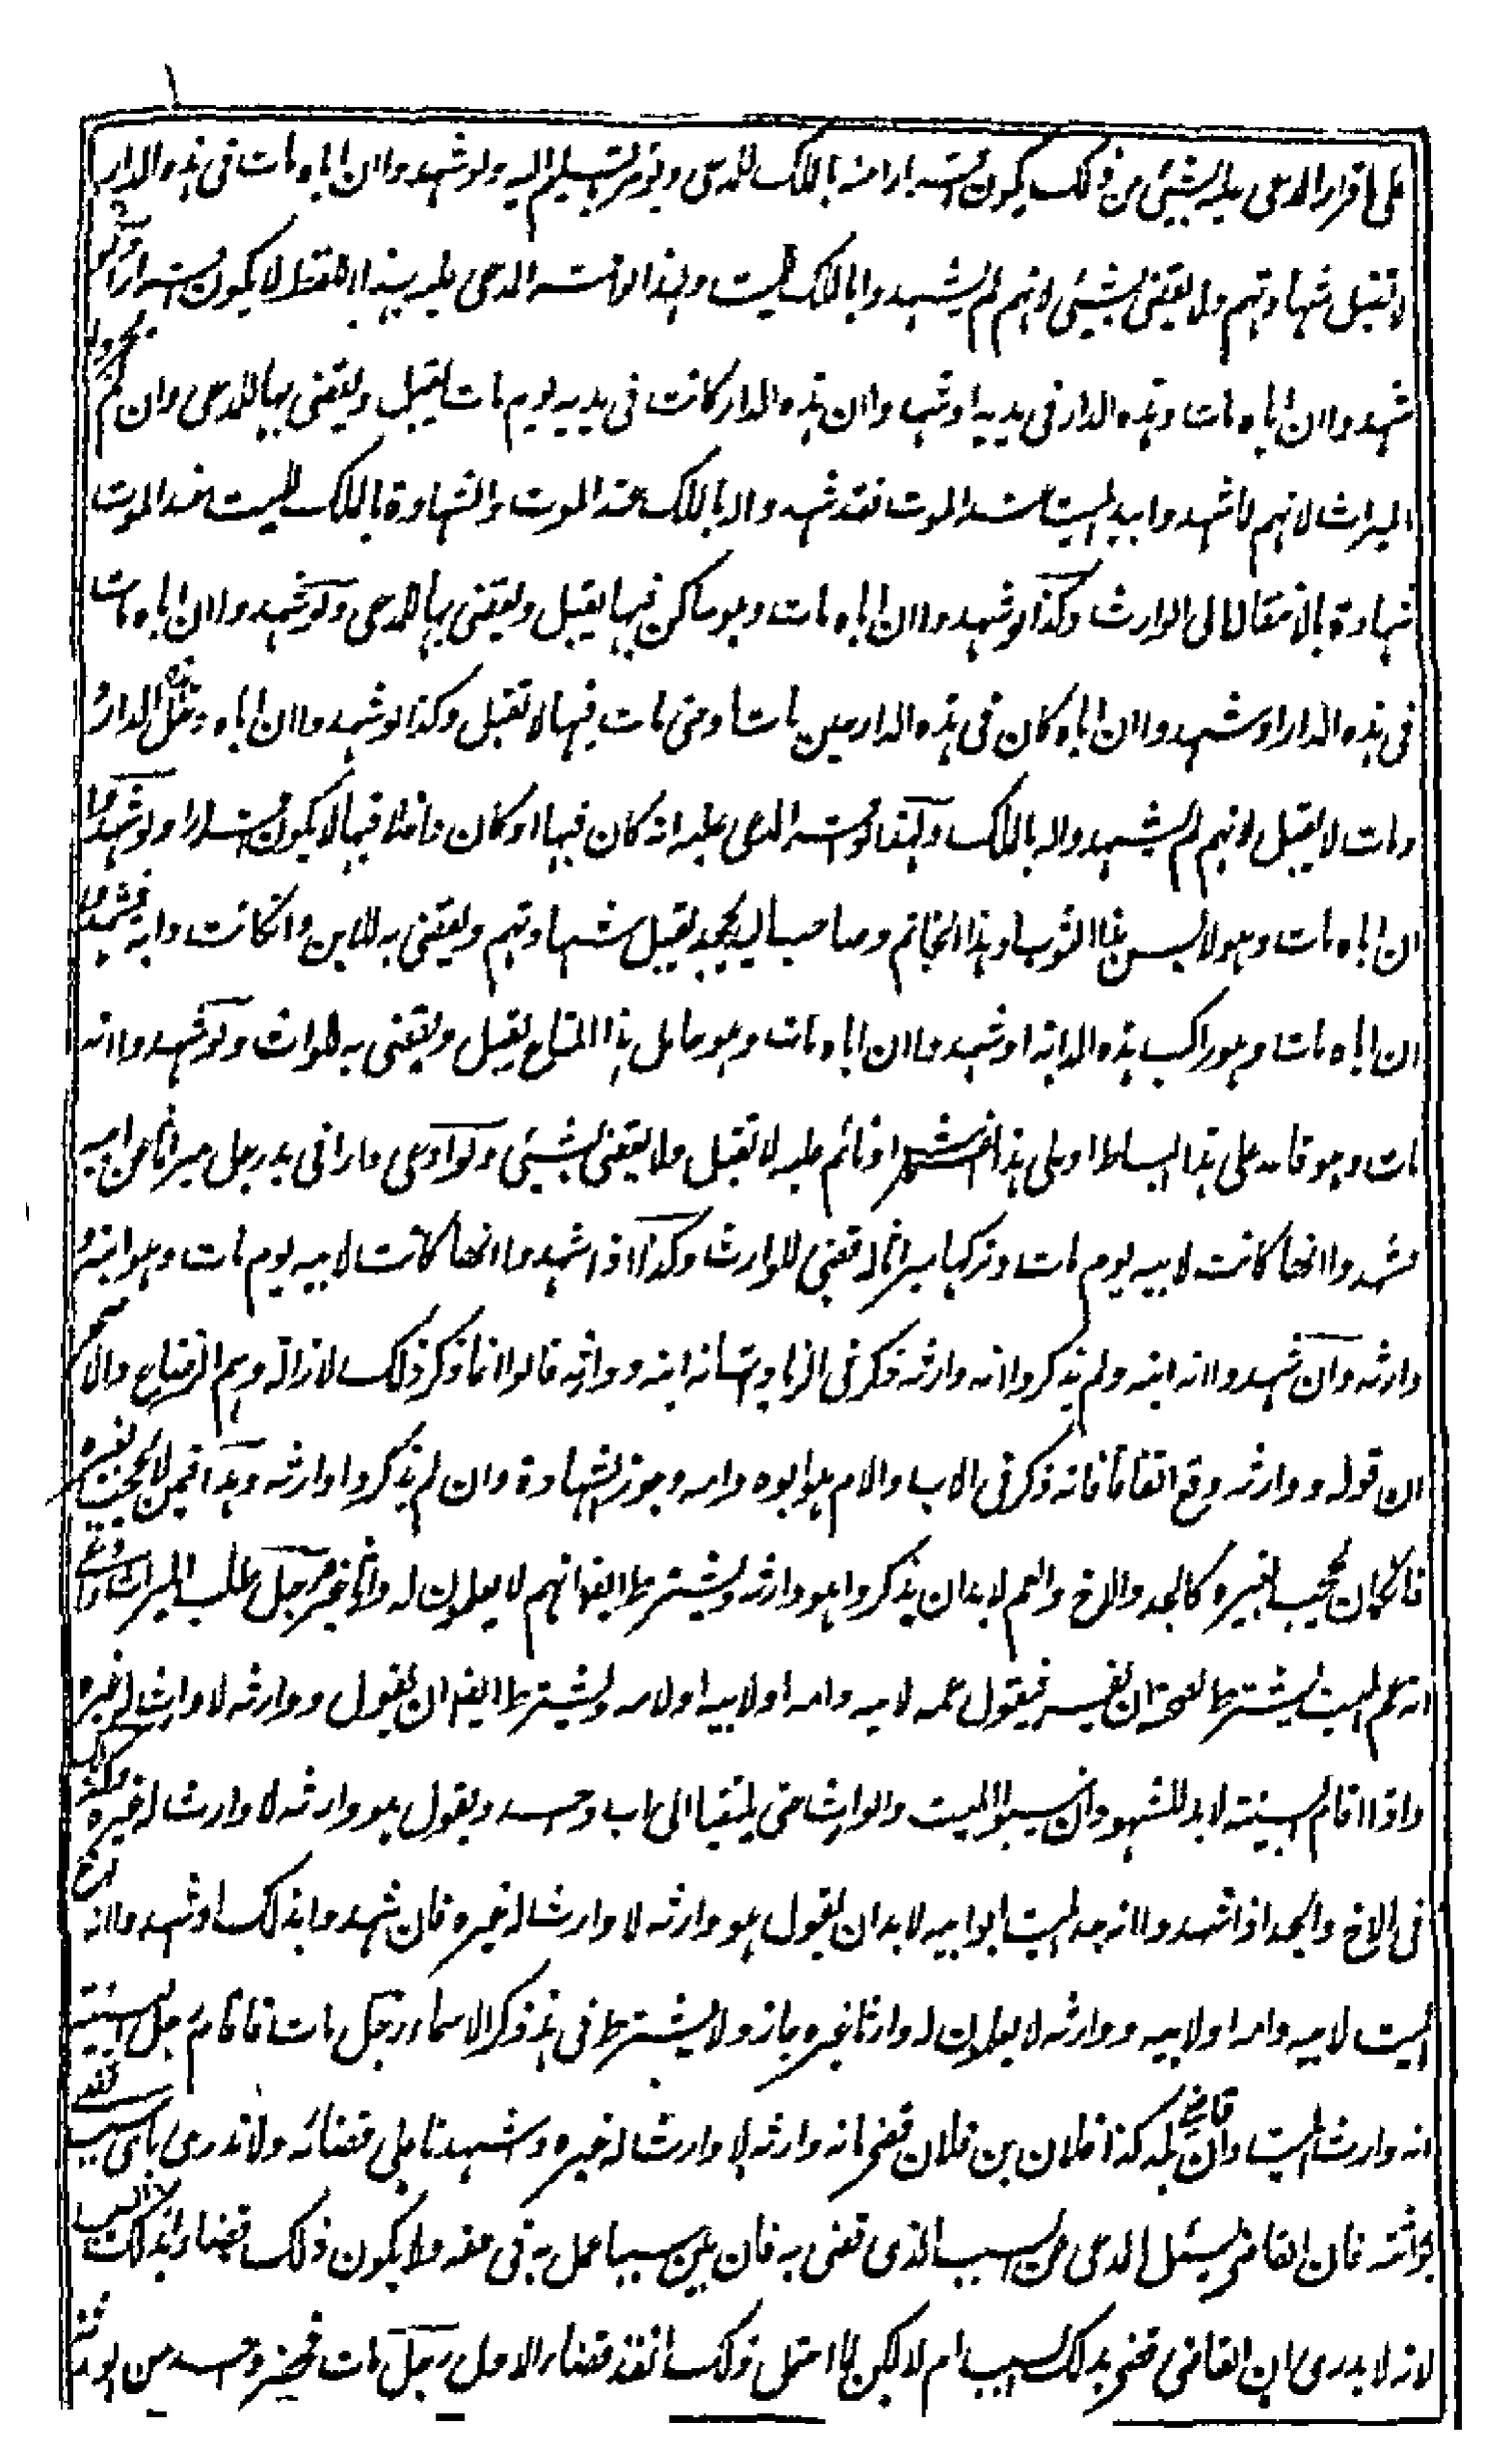 على اقرار المدعى عليه بشيئ من ذلك يكون اقرارا منه بالملك للمدعى ويؤمر بتسليم اليه ولو شهدوا ان اباه مات فى هذه الدار
لا تقبل شهادتهم ولا يقضى بشيئ لانهم لم يشهدوا بالملك للميت ولهذا لو اقر المدعى عليه بهذا اللفظ لا يكون اقرارا ولو
شهدوا ان اباه مات وهذه الدار فى يديه او شهدوا ان هذه الدار كانت فى يديه يوم مات يقبل ويقضى بها للمدعى وان لم يجروا
الميراث لانهم لما شهدوا بيد الميت عند الموت فقد شهدوا له بالملك عند الموت والشهادة بالملك للميت عند الموت
شهادة بالانتقال الى الوارث وكذا لو شهدوا ان اباه مات وهو ساكن فيها يقبل ويقضى بها للمدعى ولو شهدوا ان اباه مات
فى هذه الدار او شهدوا ان اباه كان فى هذه الدار حين مات او حتى مات فيها لا تقبل وكذا لو شهدوا ان اباه دخل هذه الدار و
ومات لا يقبل لانهم لم يشهدوا له بالملك ولهذا لو اقر المدعى عليه انه كان فيها او كان داخلا فيها لا يكون اقرارا ولو شهدوا
ان اباه مات وهو لابس هذا الثوب او هذا الخاتم وصاحب اليد يجحد يقبل شهادتهم ويقضى به للابن وان كانت دابة فشهدوا
ان اباه مات وهو راكب هذه الدابة او شهدوا ان اباه مات وهو حامل هذا المتاع يقبل ويقضى به للوارث ولو شهدوا انه
مات وهو قاعد على هذا البساط او على هذا الفراش او نائم عليه لا تقبل ولا يقضى بشيئ ولو ادعى دارا فى يد رجل ميراثا عن ابيه
فشهدوا انها كانت لابيه يوم مات وتركها ميراثا له قضى للوارث وكذا اذا شهدوا انها كانت لابيه يوم مات وهو ابنه و
وارثه وان شهدوا انه ابنه ولم يذكروا انه وارثه ذكر فى الزيادات انه ابنه ووارثه قالوا انما ذكر ذلك لازالة وهم الرضاع والاصح
ان قوله ووارثه وقع اتفاقا فانه ذكر فى الاب والام هو ابوه وامه وجوز الشهادة وان لم يذكروا وارثه وهذا فيمن لا يحجب بغيره
فان كان يحجب بغيره كالجد والاخ والعم لا بد ان يذكروا هو وارثه ويشترط ايضا انهم لا يعلمون له وارثا غيره رجل طلب الميراث وادعى
انه عم الميت يشترط لصحته ان يفسر فيقول عمه لابيه وامه او لابيه او لامه ويشترط ايضا ان يقول ووارثه لا وارث له غيره
واذا اقام البينة لا بد للشهود ان ينسبوا الميت والوارث حتى يلتقيا الى اب واحد ويقول هو وارثه لا وارث له غيره وكذلك
فى الاخ والجد اذا شهدوا انه جد الميت ابو ابيه لا بد ان يقول هو وارثه لا وارث له غيره فان شهدوا بذلك او شهدوا انه اخ
الميت لابيه وامه او لابيه ووارثه لا يعلمون له وارثا غيره جاز ولا يشترط فى هذا ذكر الاسماء رجل مات فاقام رجل البينة
انه وارث الميت وان قاضى بلد كذا فلان بن فلان قضى بانه وارثه لا وارث له غيره واشهدنا على قضائه ولا ندرى باى سبب قضى
بوراثته فان القاضى يسئل المدعى عن السبب الذى قضى به فان بين سببا عمل به فى حقه ولا يكون ذلك قضاء بذلك السبب
لانه لا يدرى ان القاضى قضى بذلك السبب ام لا لكن لما احتمل ذلك انفذ قضاء الاول رجل مات فحضر واحد من